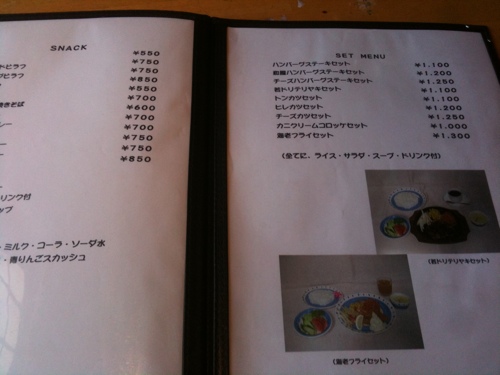 SNACK
¥550
ドピラフ ¥750
グピラフ ¥750
¥850
¥550
焼きそば ¥700
¥600
¥700
¥700
¥750
¥750
¥850
リンク付
ップ
・ミルク・コーラ・ソーダ水
・青りんごスカッシュ
SET MENU
ハンバーグステーキセット ¥1,100
和風ハンバーグステーキセット ¥1,200
チーズハンバーグステーキセット ¥1,250
若ドリテリヤキセット ¥1,100
トンカツセット ¥1,100
ヒレカツセット ¥1,200
チーズカツセット ¥1,250
カニクリームコロッケセット ¥1,000
海老フライセット ¥1,300
(全てに、ライス・サラダ・スープ・ドリンク付)
(若ドリテリヤキセット)
(海老フライセット)